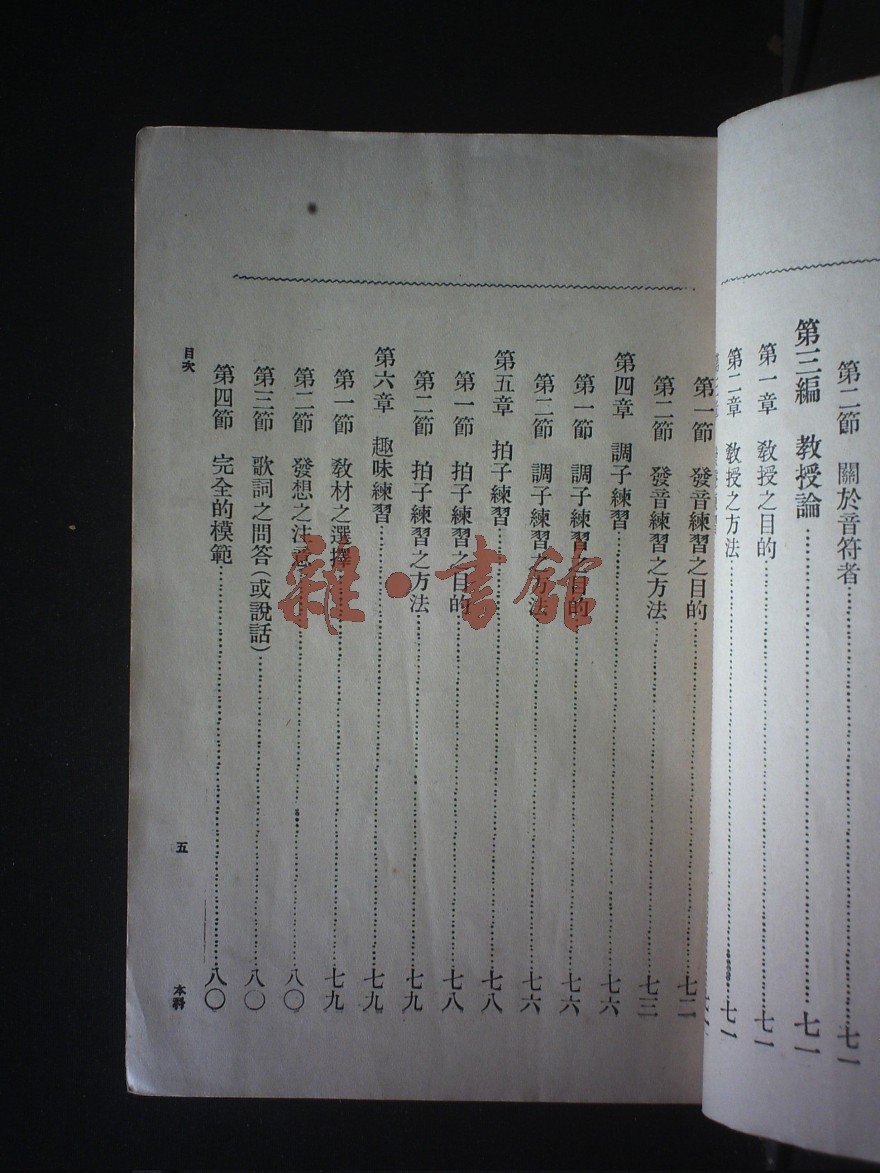 第二節　關於音符者……七一
第三編　教授論……七一
第一章　教授之目的……七一
第二章　教授之方法……七一
第一節　發音練習之目的……七二
第二節　發音練習之方法……七三
第四章　調子練習……七六
第一節　調子練習之目的……七六
第二節　調子練習之方法……七六
第五章　拍子練習……七八
第一節　拍子練習之目的……七八
第二節　拍子練習之方法……七九
第六章　趣味練習……七九
第一節　教材之選擇……七九
第二節　發想之注意……八〇
第三節　歌詞之問答（或說話）……八〇
第四節　完全的模範……八〇
目次
五
本科
雜·書館